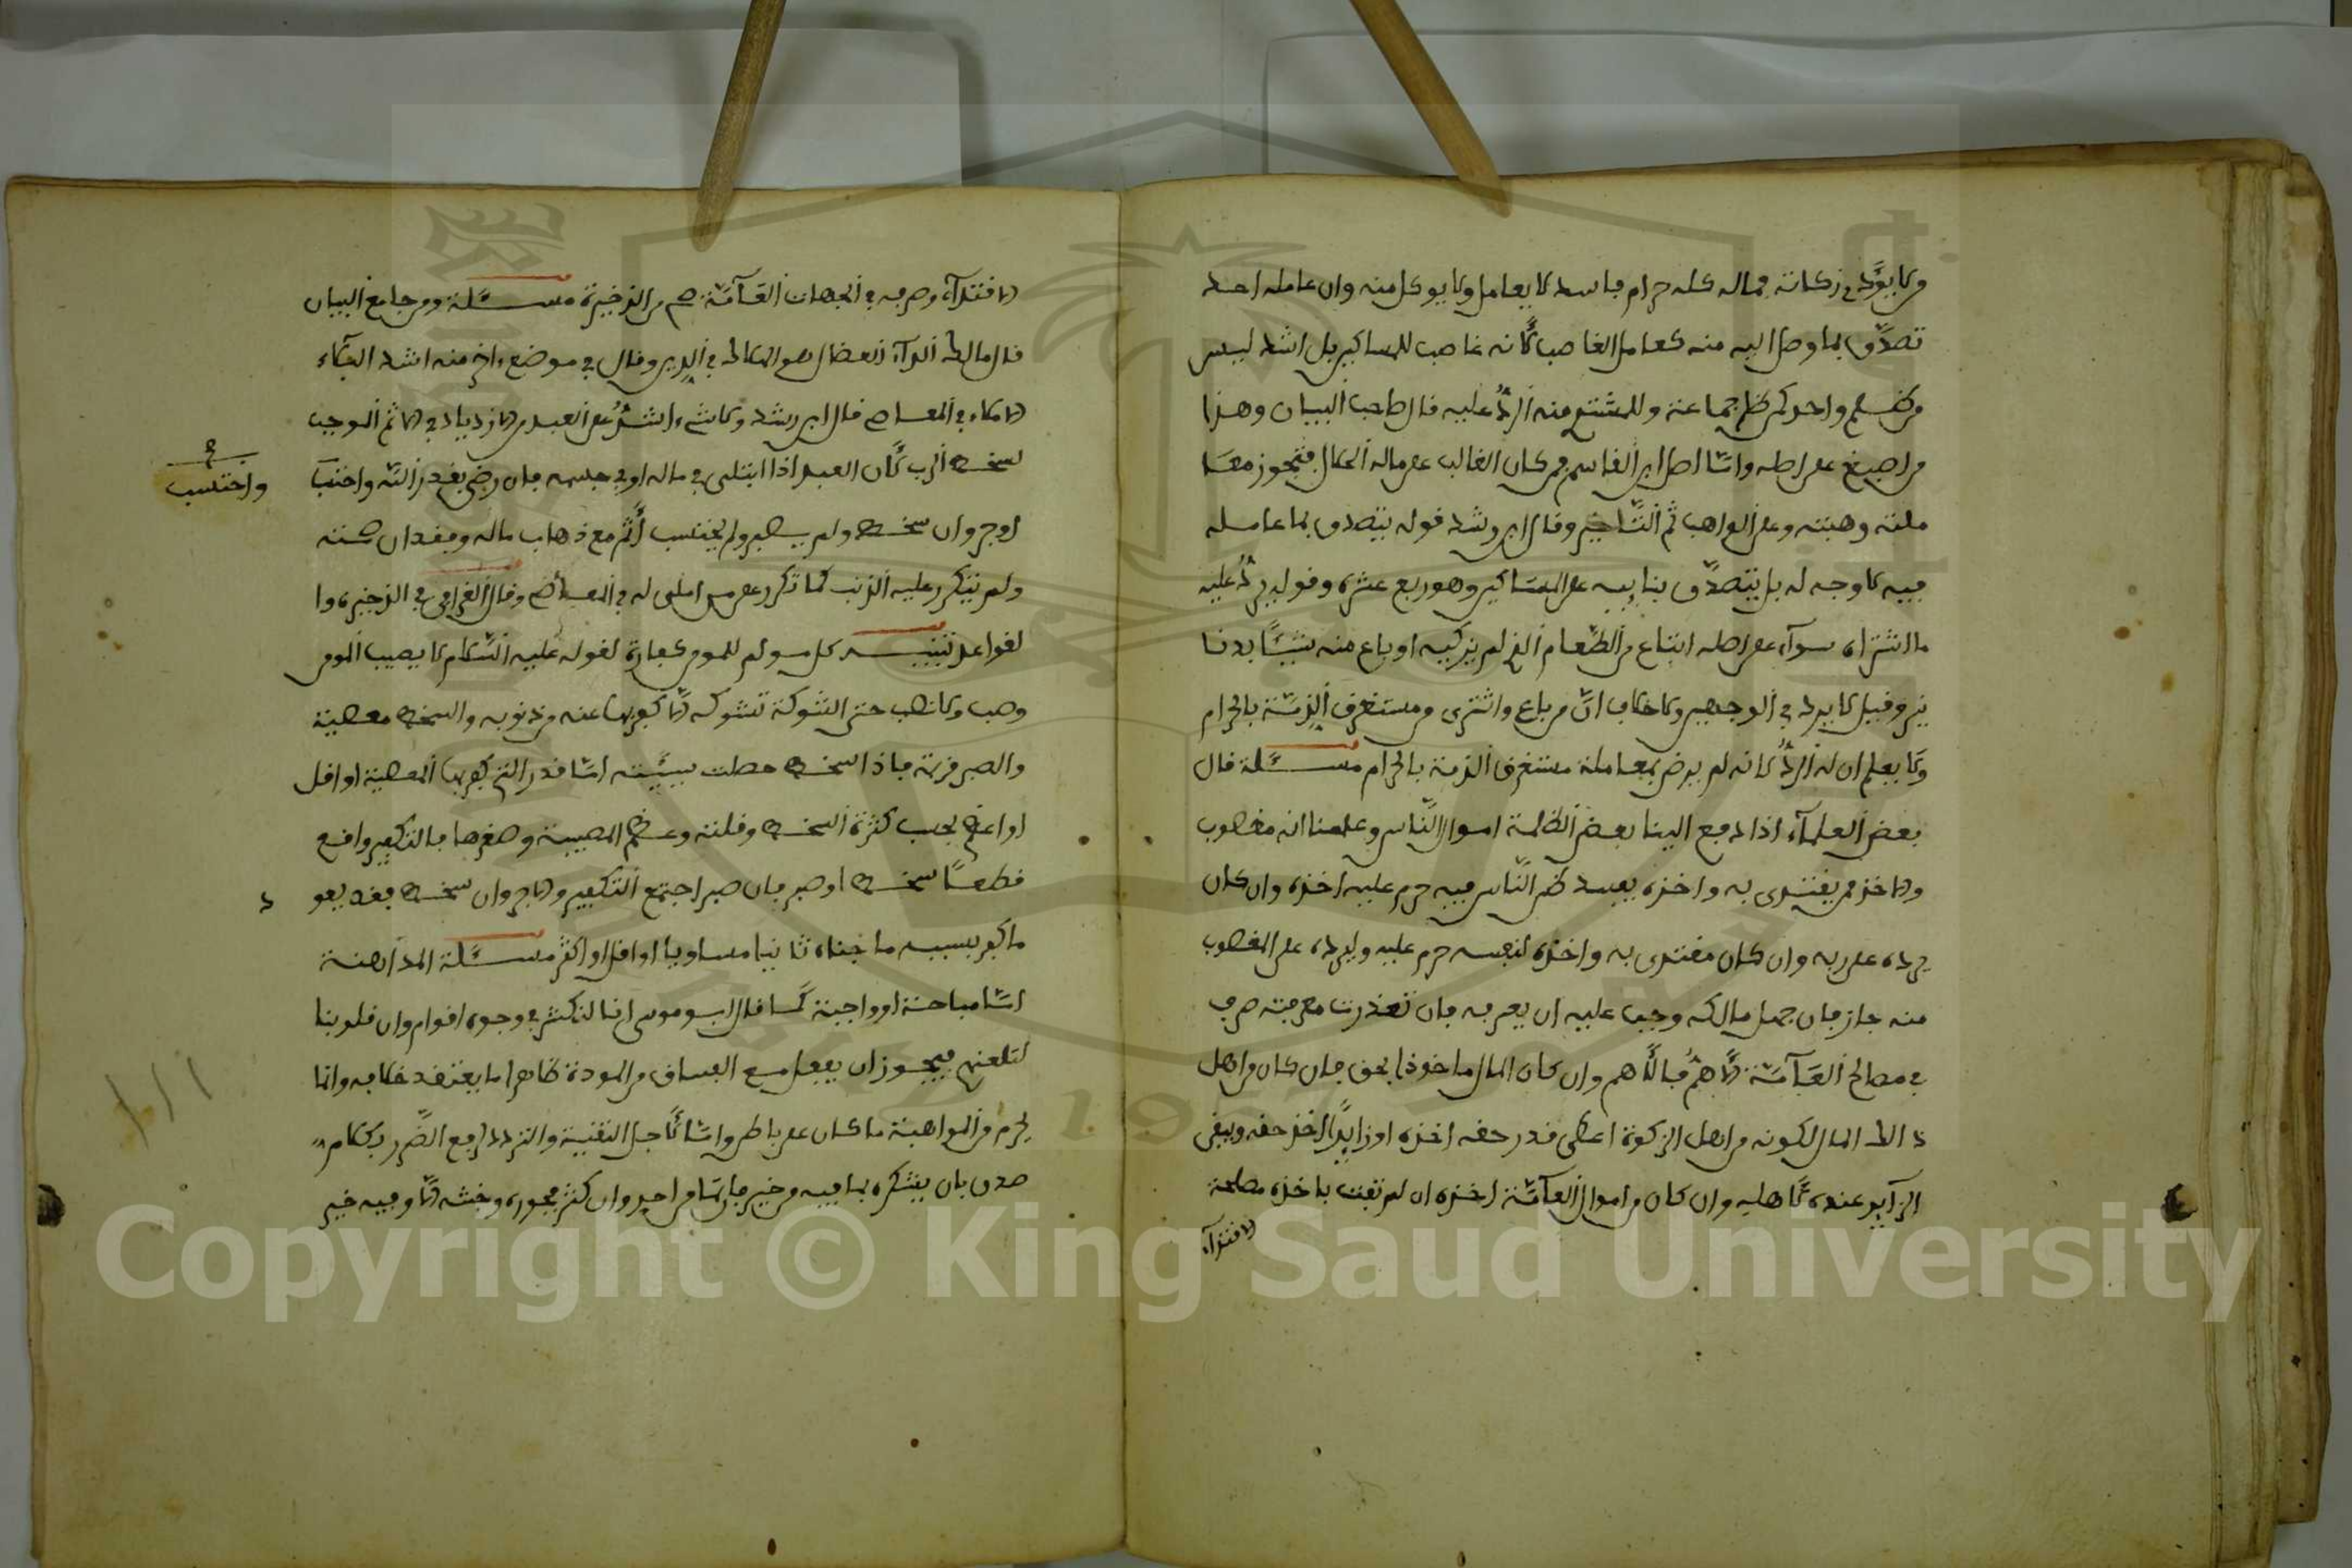 ولا يؤدي زكاته فماله كله حرام فاسد لا يعامل ولا يوكل منه وان عامله احد
تصدق بما وصل اليه منه كمعامل الغاصب لأنه غاصب للمساكين بل اشد ليس
من ظلم واحد كمن ظلم جماعة وللمشتري منه الرد عليه قال صاحب البيان وهذا
من اصبغ على اصله واما اصل ابن القاسم من كان الغالب على ماله الحلال فتجوز معا
ملته وهبته وعلى الواهب اثم التأخير وقال ابن رشد قوله يتصدق بما عامله
فيه لا وجه له بل يتصدق بنايبه على المساكين وهو ربع عشره وقوله يرد عليه
ما اشتراه سواء على اصله ابتاع من الطعام الذي لم يزكيه او باع منه شيئا بدنا
نير وقيل لا يرد في الوجهين ولا خلاف ان من باع واشترى من مستغرق الذمة بالحرام
ولا يعلم ان له الرد لانه لم يرض بمعاملة مستغرق الذمة بالحرام مسئلة قال
بعض العلماء اذا دفع الينا بعض الظلمة اموال الناس وعلمنا انه مغصوب
والاخذ ممن يقتدى به واخذه يفسد ظن الناس فيه حرم عليه اخذه وان كان
يرده على ربه وان كان مقتدى به واخذه لنفسه حرم عليه وليرده على المغصوب
منه جاز فان جهل مالكه وجب عليه ان يعرفه فان تعذرت معرفته صرف
في مصالح العامة الأهم فالأهم وان كان المال ماخوذا بحق فان كان من اهل
ذالك المال لكونه من اهل الزكوة اعطى قدر حقه اخذه او زايدا اخذ حقه ويبقى
الزايد عنده لأهله وان كان من اموال العامة اخذه ان لم تفت باخذه مصلحة
الاقتداء
الاقتداء وصرفه في الجهات العامة صح من الذخيرة مسئلة ومن جامع البيان
قال مالك الداء العضال هو الهلاك في الدين وقال في موضع ءاخر منه اشد البلاء
الاملاء في المعاصي قال ابن رشد ولا شيء اشد على العبد من الازدياد في الاثم الموجب
لسخط الرب لأن العبد اذا ابتلى في ماله او في جسمه فان رضي بقدر الله واختب
واحتسب صح
اوجر وان سخط ولم يصبر ولم يحتسب أثم مع ذهاب ماله وفقدان صحته
ولم يتكرر عليه الذنب كما تكرر على من املى له في المعاصي وقال القرافي في الذخيرة وا
لقواعد تنبيه كل مولم للمومن كفارة لقوله عليه السلام لا يصيب المومن
وصب ولا نصب حتى الشوكة تشوكه الا كفر بها عنه من ذنوبه والسخط معصية
والصبر قربة فاذا سخط حصلت سيئته اما قدر التي كفر بها المعصية او اقل
او اعظم بحسب كثرة السخط وقلته وعظم المصيبة وصغرها فالتكفير واقع
قطعا سخط او صبر فان صبر اجتمع التكفير والاجر وان سخط فقد يعو د
ما كفر بسببه ما جناه ثانيا مساويا او اقل او اكثر مسئلة المداهنة
اما مباحة او واجبة كما قال ابو موسى انا لنكشر في وجوه اقوام وان قلوبنا
لتلعنهم فيجوز ان يفعل مع الفساق من المودة ظاهرا ما يعتقد خلافه وانما
يحرم من المداهنة ما كان على باطل واما لأجل التقية والتردد لرفع الضرر بكلام
صدق بان يشكره بما فيه من خير فما من احد وان كثر فجوره وخبثه الا وفيه خير